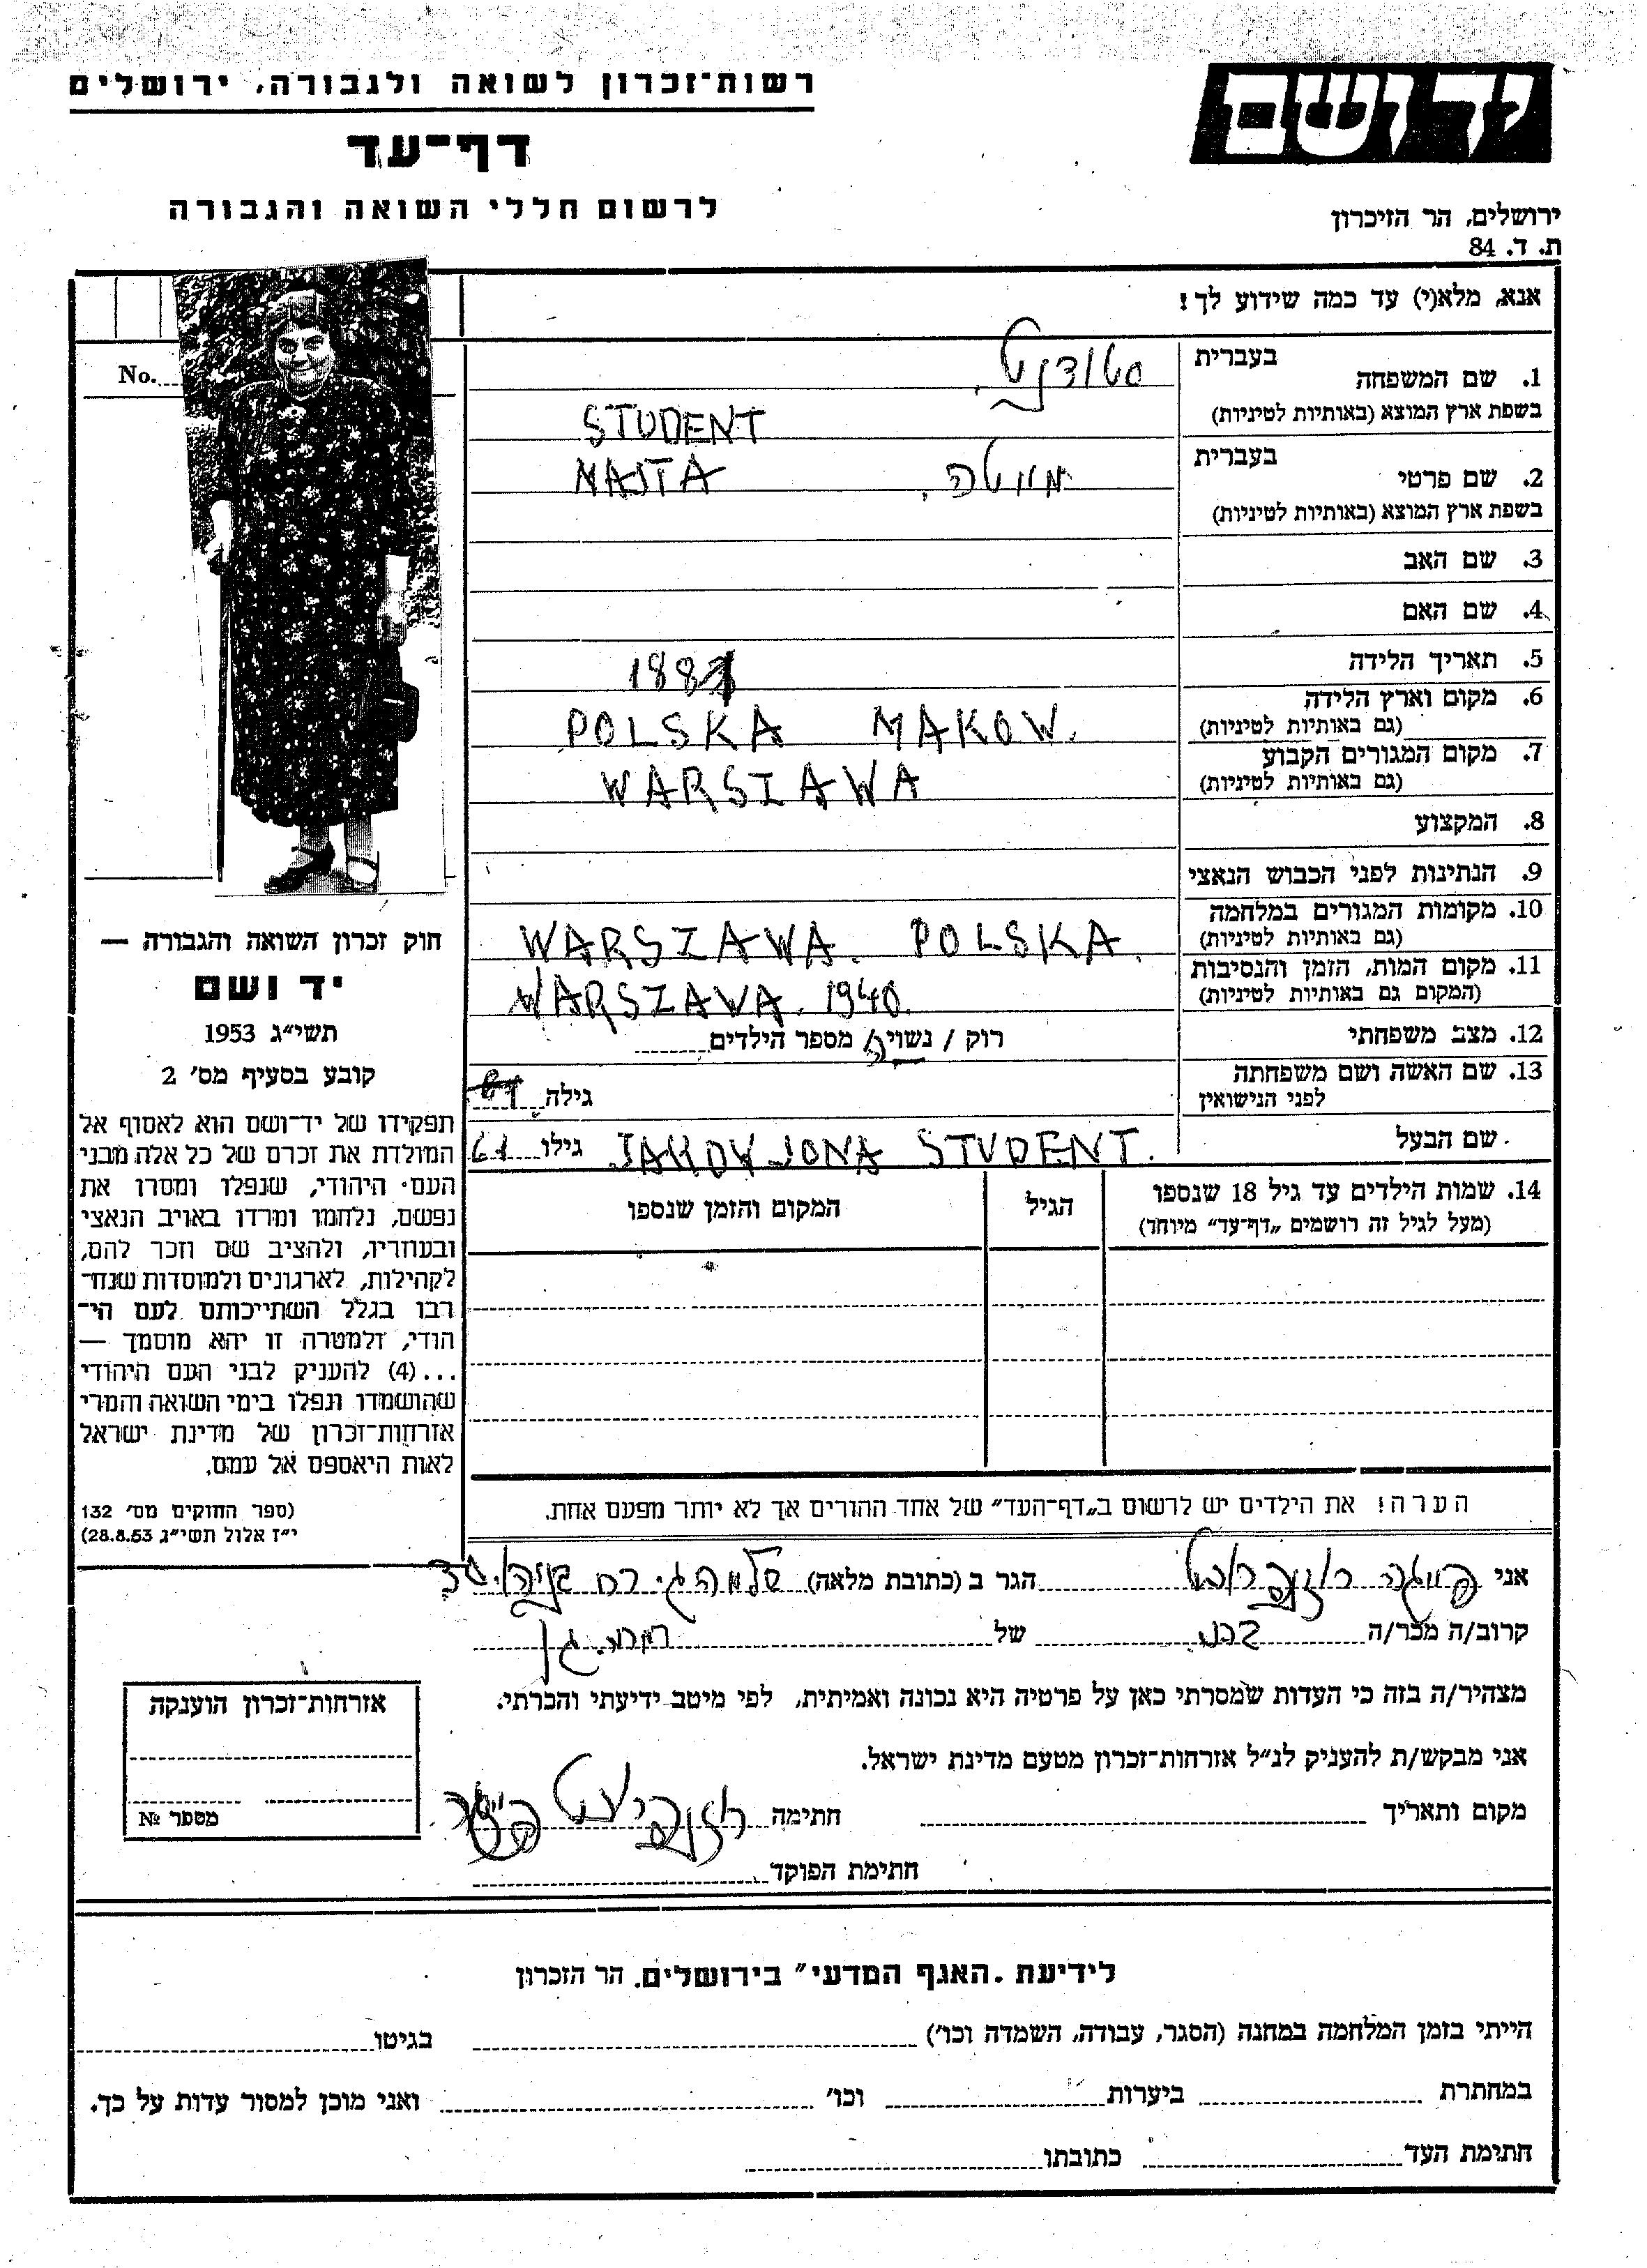 רשות־זכרון לשואה ולגבורה, ירושלים
דף־עד
לרשום חללי השואה והגבורה
יד ושם
ירושלים, הר הזיכרון
ת. ד. 84
אנא, מלא(י) עד כמה שידוע לך!
No.
1. שם המשפחה בעברית סטודנט.
בשפת ארץ המוצא (באותיות לטיניות) STUDENT
2. שם פרטי בעברית
בשפת ארץ המוצא (באותיות לטיניות)
3. שם האב
4. שם האם
5. תאריך הלידה
6. מקום וארץ הלידה
(גם באותיות לטיניות) POLSKA MAKOW.
7. מקום המגורים הקבוע
(גם באותיות לטיניות) WARSZAWA
8. המקצוע
9. הנתינות לפני הכבוש הנאצי
10. מקומות המגורים במלחמה
(גם באותיות לטיניות) WARSZAWA. POLSKA.
11. מקום המות, הזמן והנסיבות
(המקום גם באותיות לטיניות) WARSZAWA. 1940.
12. מצב משפחתי רווק / נשוי/ה מספר הילדים
13. שם האשה ושם משפחתה
לפני הנישואין גילה
שם הבעל JAKOV JONA STUDENT. גילו 61
14. שמות הילדים עד גיל 18 שנספו
(מעל לגיל זה רושמים „דף־עד” מיוחד)
הגיל
המקום והזמן שנספו
חוק זכרון השואה והגבורה —
יד ושם
תשי״ג 1953
קובע בסעיף מס׳ 2
תפקידו של יד־ושם הוא לאסוף אל
המולדת את זכרם של כל אלה מבני
העם היהודי, שנפלו ומסרו את
נפשם, נלחמו ומרדו באויב הנאצי
ובעוזריו, ולהציב שם וזכר להם,
לקהילות, לארגונים ולמוסדות שנח־
רבו בגלל השתייכותם לעם הי־
הודי, ולמטרה זו יהא מוסמך —
...(4) להעניק לבני העם היהודי
שהושמדו ונפלו בימי השואה והמרי
אזרחות־זכרון של מדינת ישראל
לאות היאספם אל עמם.
(ספר החוקים מס׳ 132
י״ז אלול תשי״ג 28.8.53)
הערה! את הילדים יש לרשום ב„דף־העד” של אחד ההורים אך לא יותר מפעם אחת.
אני הגר ב (כתובת מלאה)
קרוב/ה מכר/ה של
מצהיר/ה בזה כי העדות שמסרתי כאן על פרטיה היא נכונה ואמיתית, לפי מיטב ידיעתי והכרתי.
אני מבקש/ת להעניק לנ״ל אזרחות־זכרון מטעם מדינת ישראל.
מקום ותאריך חתימה
חתימת הפוקד
אזרחות־זכרון הוענקה
מספר №
לידיעת „האגף המדעי” בירושלים. הר הזכרון
הייתי בזמן המלחמה במחנה (הסגר, עבודה, השמדה וכו׳) בגיטו
במחתרת ביערות וכו׳ ואני מוכן למסור עדות על כך.
חתימת העד כתובתו